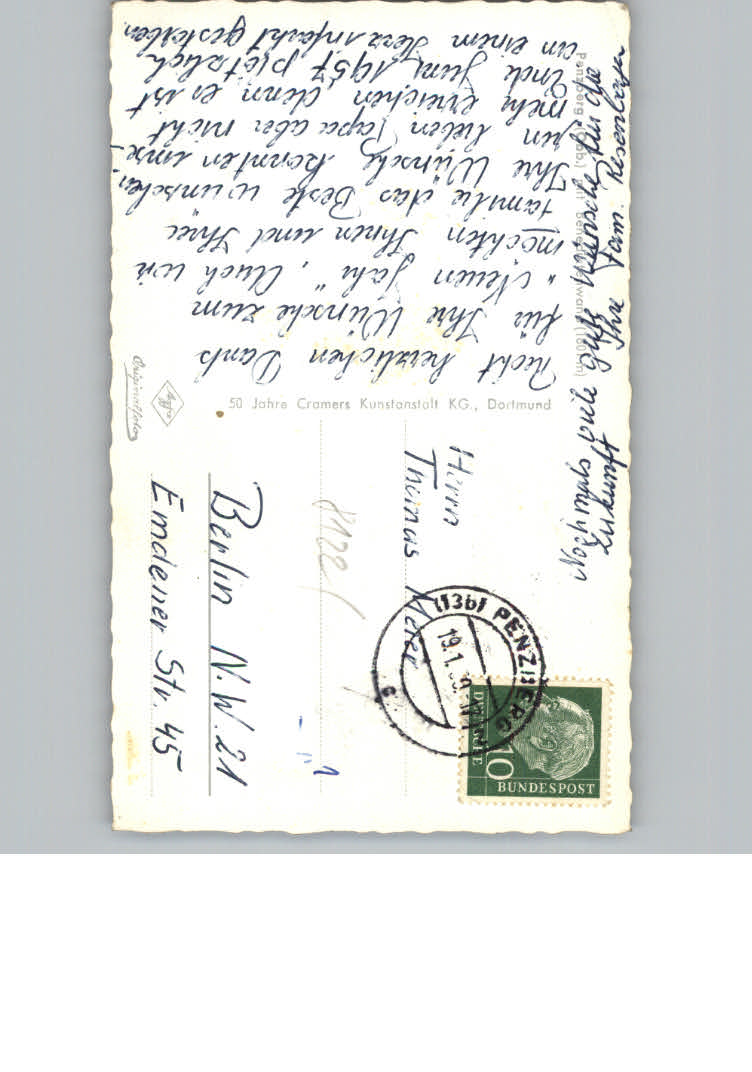 Recht herzlichen Dank
für Ihre Wünsche zum
„Neuen Jahr“, Auch wir
möchten Ihnen und Ihrer
Familie das Beste wünschen.
Ihre Wünsche konnten uns-
ren lieben Papa aber nicht
mehr erreichen denn es ist
Ende Juni 1957 plötzlich
an einem Herzinfarkt gestorben.
Nochmals gute Wünsche für die
Zukunft
Ihre Fam.
Penzberg (Obb.) mit Benediktenwand (1801 m)
50 Jahre Cramers Kunstanstalt KG., Dortmund
Agfa
Originalfoto
Herrn
Thomas Meier
Berlin N.W. 21
Emdener Str. 45
8122
1
(13b) PENZBERG
19.1.
c
10
BUNDESPOST
DEUTSCHE